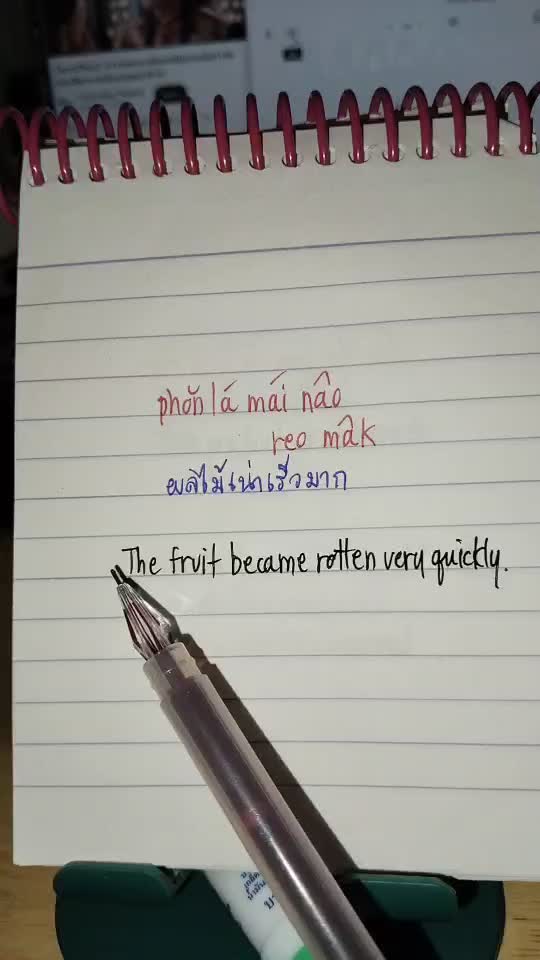 phǒn lá mái nâo
reo mâk
ผลไม้เน่าเร็วมาก
The fruit became rotten very quickly.